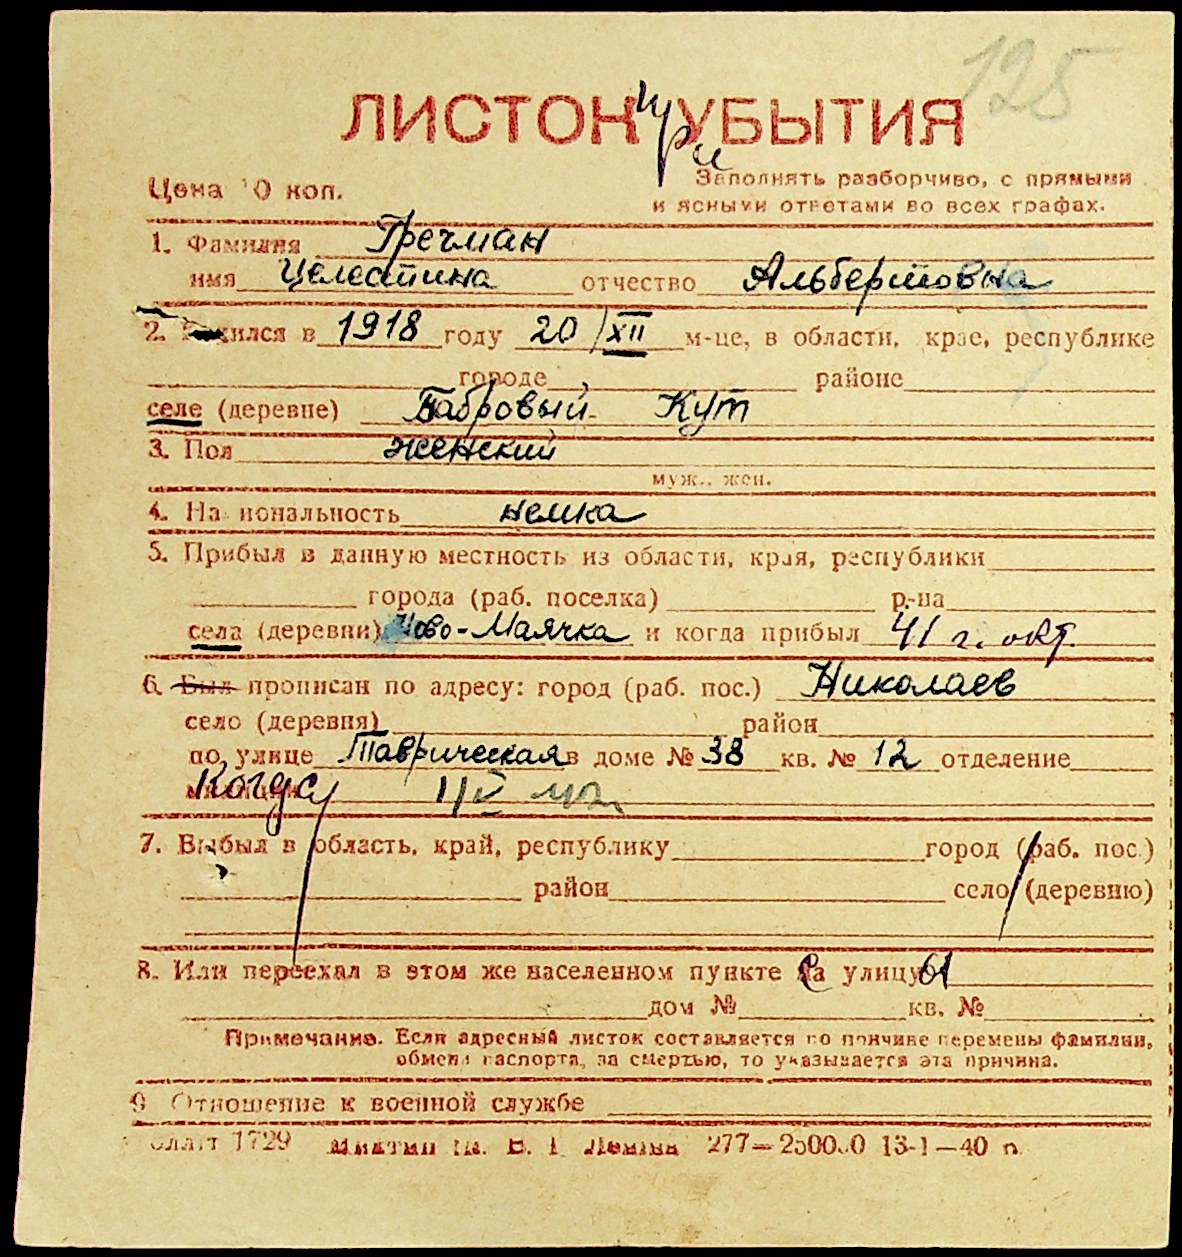 125
ЛИСТОК при УБЫТИЯ
Цена 10 коп.
Заполнять разборчиво, с прямыми
и ясными ответами во всех графах.
1. Фамилия Гречман
имя Целестина отчество Альбертовна
2. Родился в 1918 году 20/XII м-це, в области, крае, республике
городе районе
селе (деревне) Бобровый Кут
3. Пол женский
муж., жен.
4. Национальность немка
5. Прибыл в данную местность из области, края, республики
города (раб. поселка) р-на
села (деревни) Ново-Маячка и когда прибыл 41 г. окт.
6. Был прописан по адресу: город (раб. пос.) Николаев
село (деревня) район
по улице Таврическая в доме № 38 кв. № 12 отделение
милиции
7. Выбыл в область, край, республику город (раб. пос.)
район село (деревню)
8. Или переехал в этом же населенном пункте на улицу
дом № кв. №
Примечание. Если адресный листок составляется по причине перемены фамилии,
обмена паспорта, за смертью, то указывается эта причина.
9 Отношение к военной службе
1729 Ленина 277—250000 13-1—40 г.